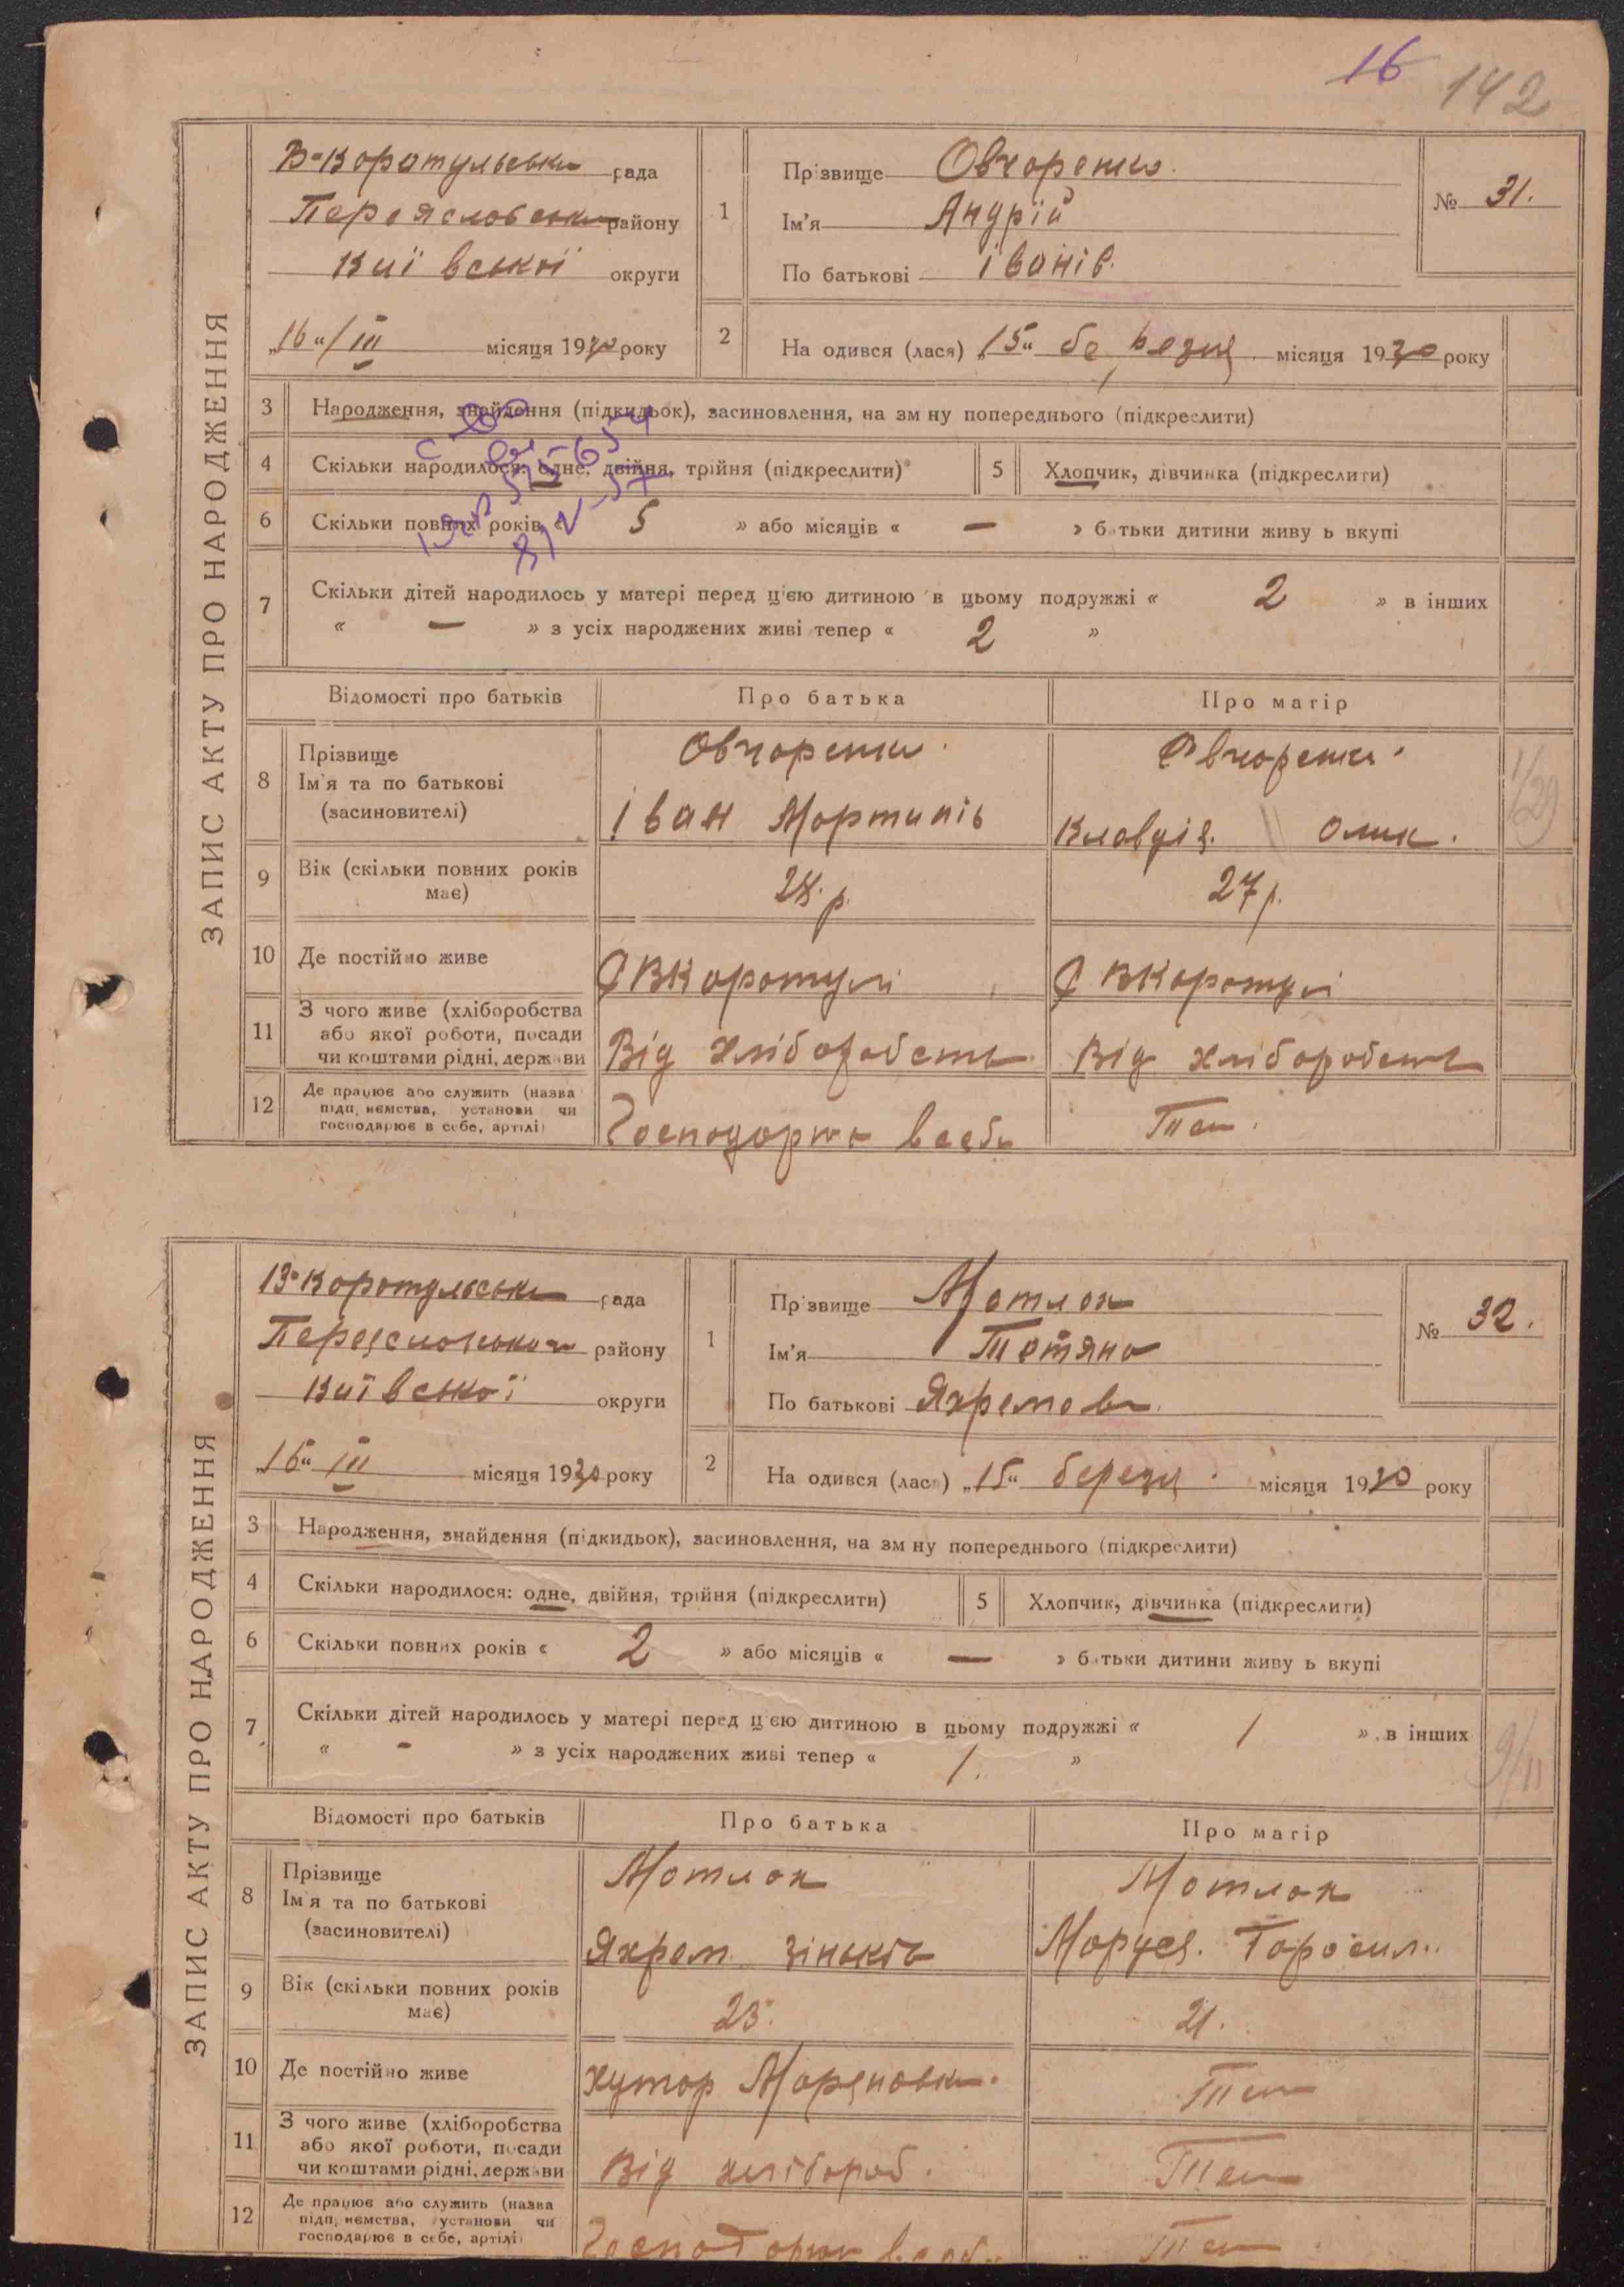 16 142
ЗАПИС АКТУ ПРО НАРОДЖЕННЯ
В-Коратульська рада
Переяславськ району
Київської округи
„16“/III місяця 1930 року
1
Прізвище Овчаренко
Ім'я Андрій
По батькові Іванів.
№ 31.
2 На одився (лася) „15“ березня місяця 1930 року
3 Народження, знайдення (підкидьок), засиновлення, на зм ну попереднього (підкреслити)
4 Скільки народилося: одне, двійня, трійня (підкреслити) 5 Хлопчик, дівчинка (підкреслити)
6 Скільки повних років « 5 » або місяців « — » батьки дитини живу ь вкупі
7 Скільки дітей народилось у матері перед цією дитиною в цьому подружжі « 2 » в інших
« — » з усіх народжених живі тепер « 2 »
Відомості про батьків Про батька Про матір
8 Прізвище Овчаренко Овчаренко
Ім'я та по батькові
(засиновителі) Іван Мартинів Клавдія. Олик.
9 Вік (скільки повних років має) 28 р. 27 р.
10 Де постійно живе С ВКоротулі С ВКоротулі
11 З чого живе (хліборобства
або якої роботи, посади
чи коштами рідні, держави Від хліборобств Від хліборобств
12 Де працює або служить (назва
підприємства, установи чи
господарює в себе, артілі) Господарює в себе Теж.
ЗАПИС АКТУ ПРО НАРОДЖЕННЯ
В-Коротульська рада
Переяславського району
Київської округи
„16“ III місяця 1930 року
1
Прізвище Матлах
Ім'я Тетяна
По батькові Яхремова.
№ 32.
2 На одився (лася) „15“ березня місяця 1930 року
3 Народження, знайдення (підкидьок), засиновлення, на зм ну попереднього (підкреслити)
4 Скільки народилося: одне, двійня, трійня (підкреслити) 5 Хлопчик, дівчинка (підкреслити)
6 Скільки повних років « 2 » або місяців « — » батьки дитини живу ь вкупі
7 Скільки дітей народилось у матері перед цією дитиною в цьому подружжі « 1 » в інших
« - » з усіх народжених живі тепер « 1. »
Відомості про батьків Про батька Про матір
8 Прізвище Матлах Матлах
Ім'я та по батькові
(засиновителі) Яхрем Зіньків Маруся. Тарасил.
9 Вік (скільки повних років має) 23. 21.
10 Де постійно живе хутор Мар'яновка. Теж
11 З чого живе (хліборобства
або якої роботи, посади
чи коштами рідні, держави Від хлібороб. Теж
12 Де працює або служить (назва
підприємства, установи чи
господарює в себе, артілі) Господарює в себе Теж